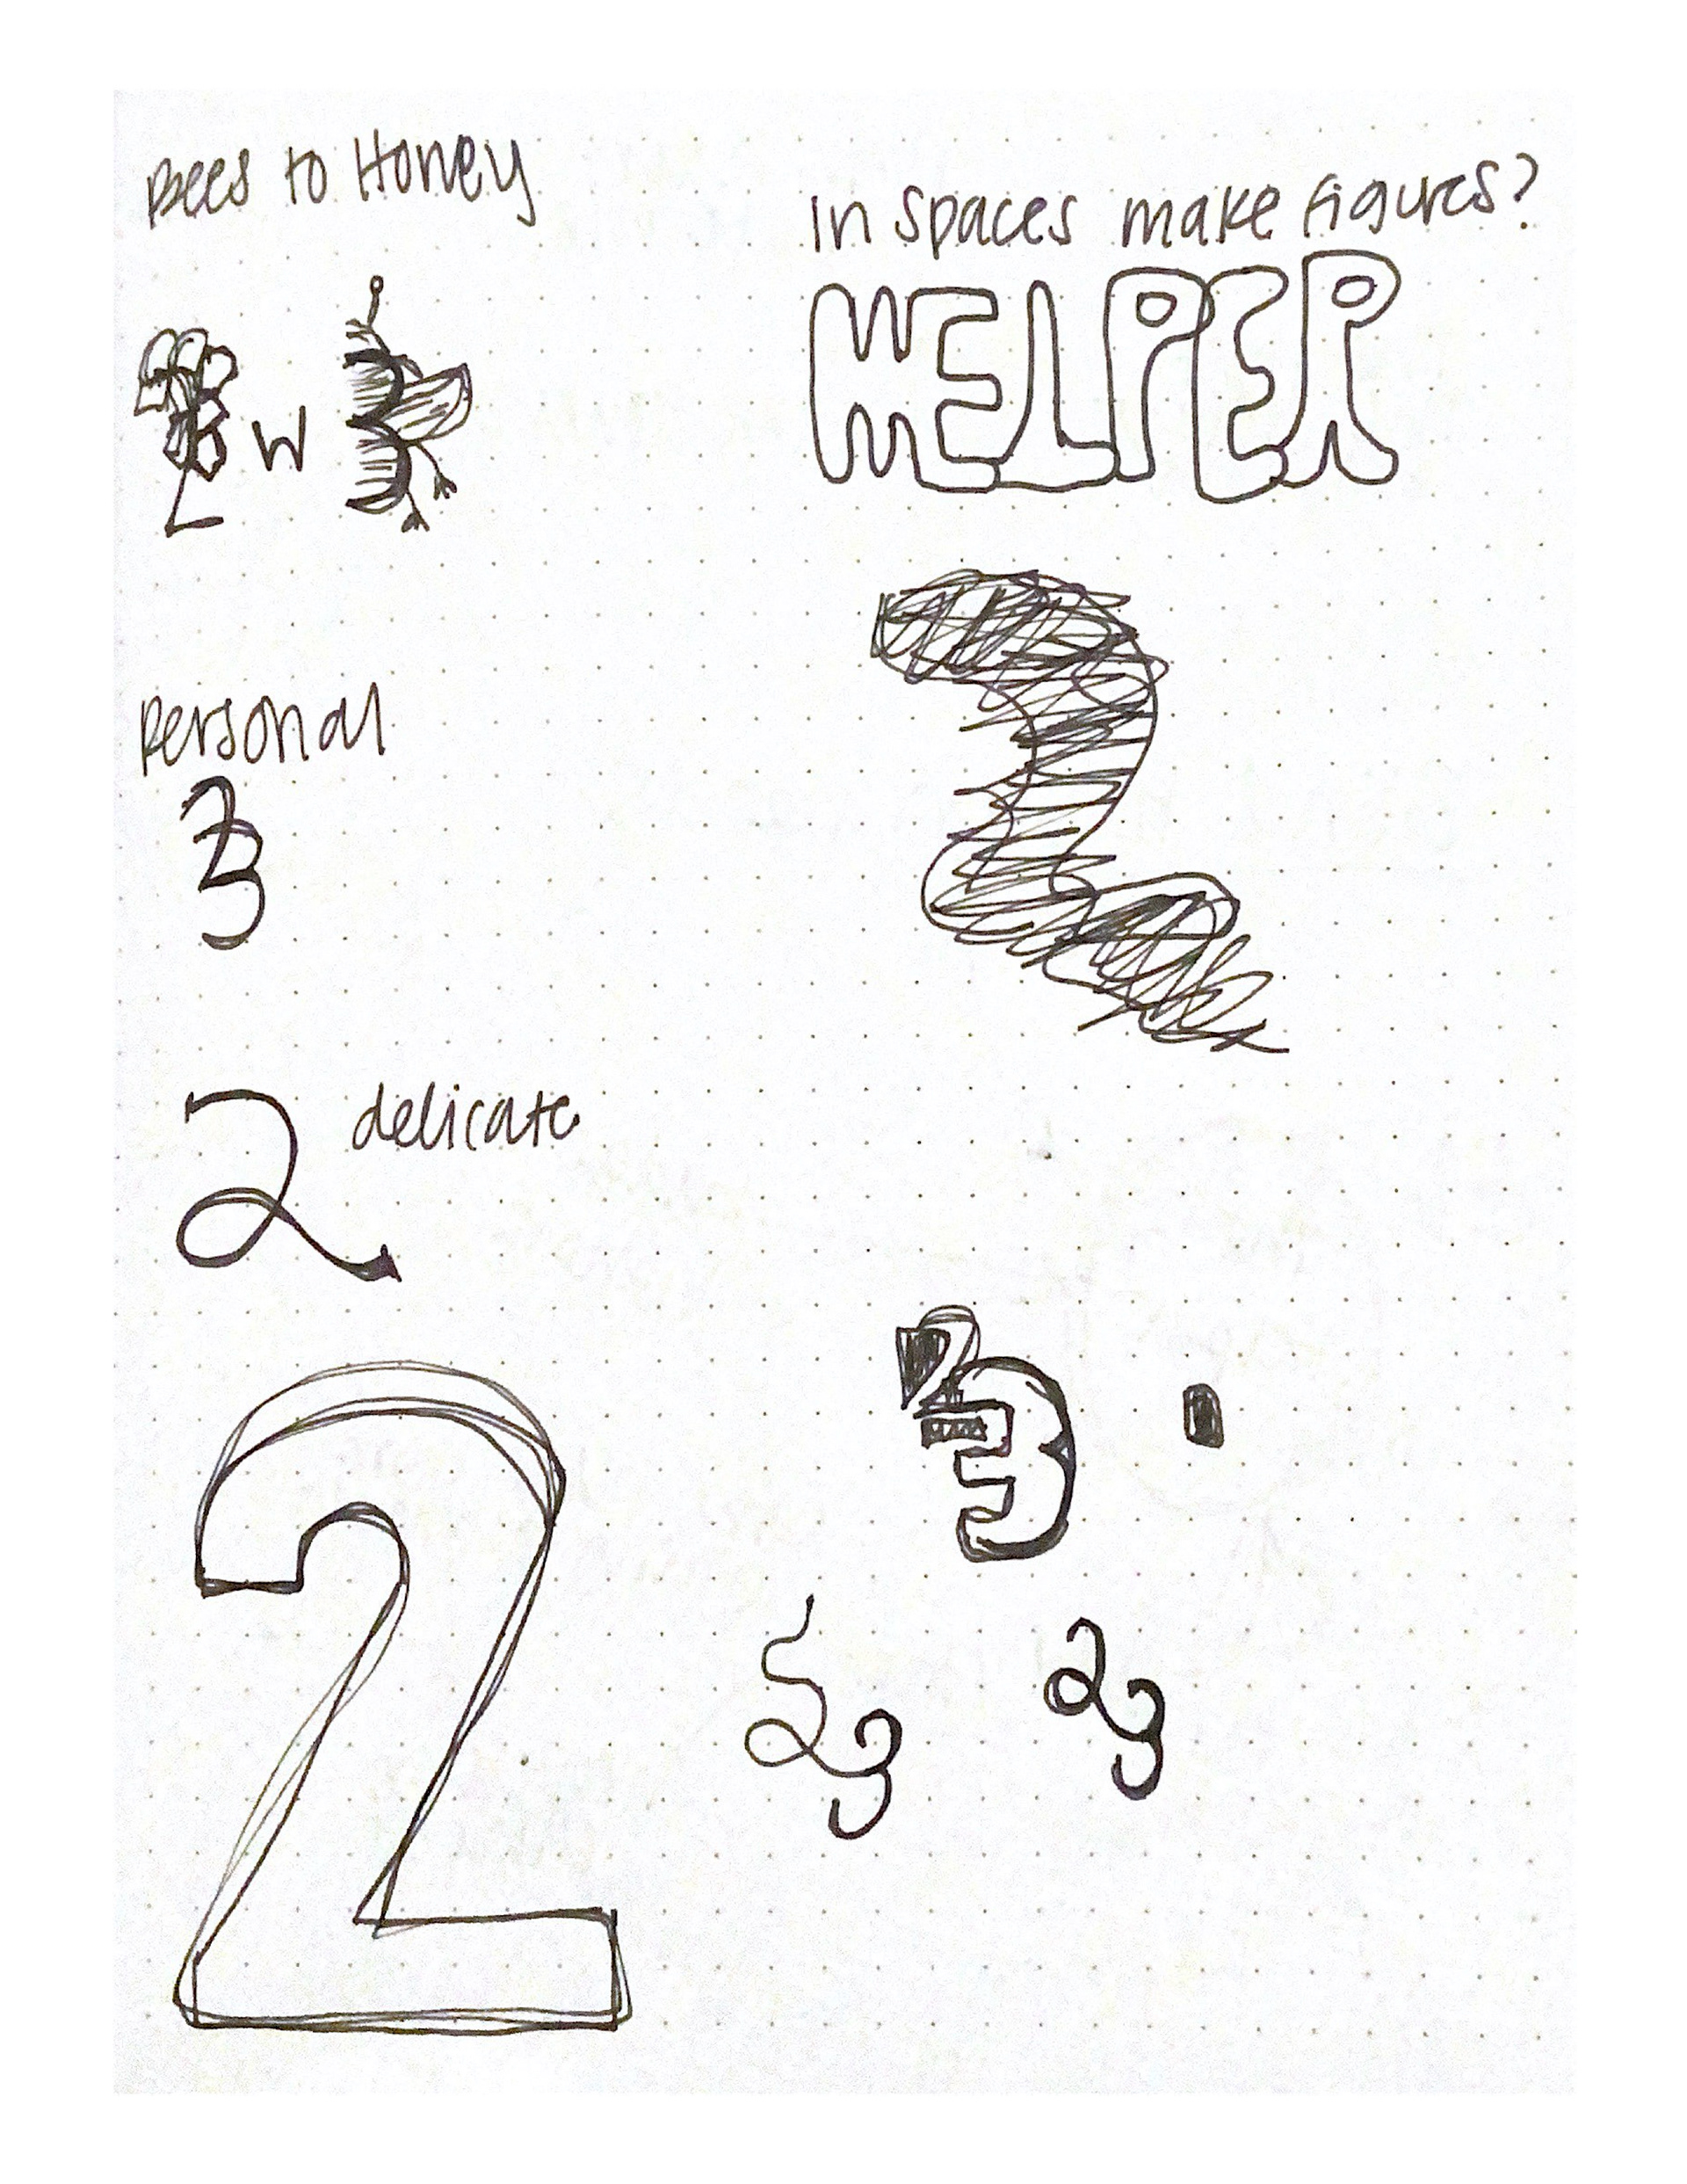 Bees to Honey
2 w 3
in spaces make figures?
HELPER
personal
23
2
2 delicate
2
23
23
23